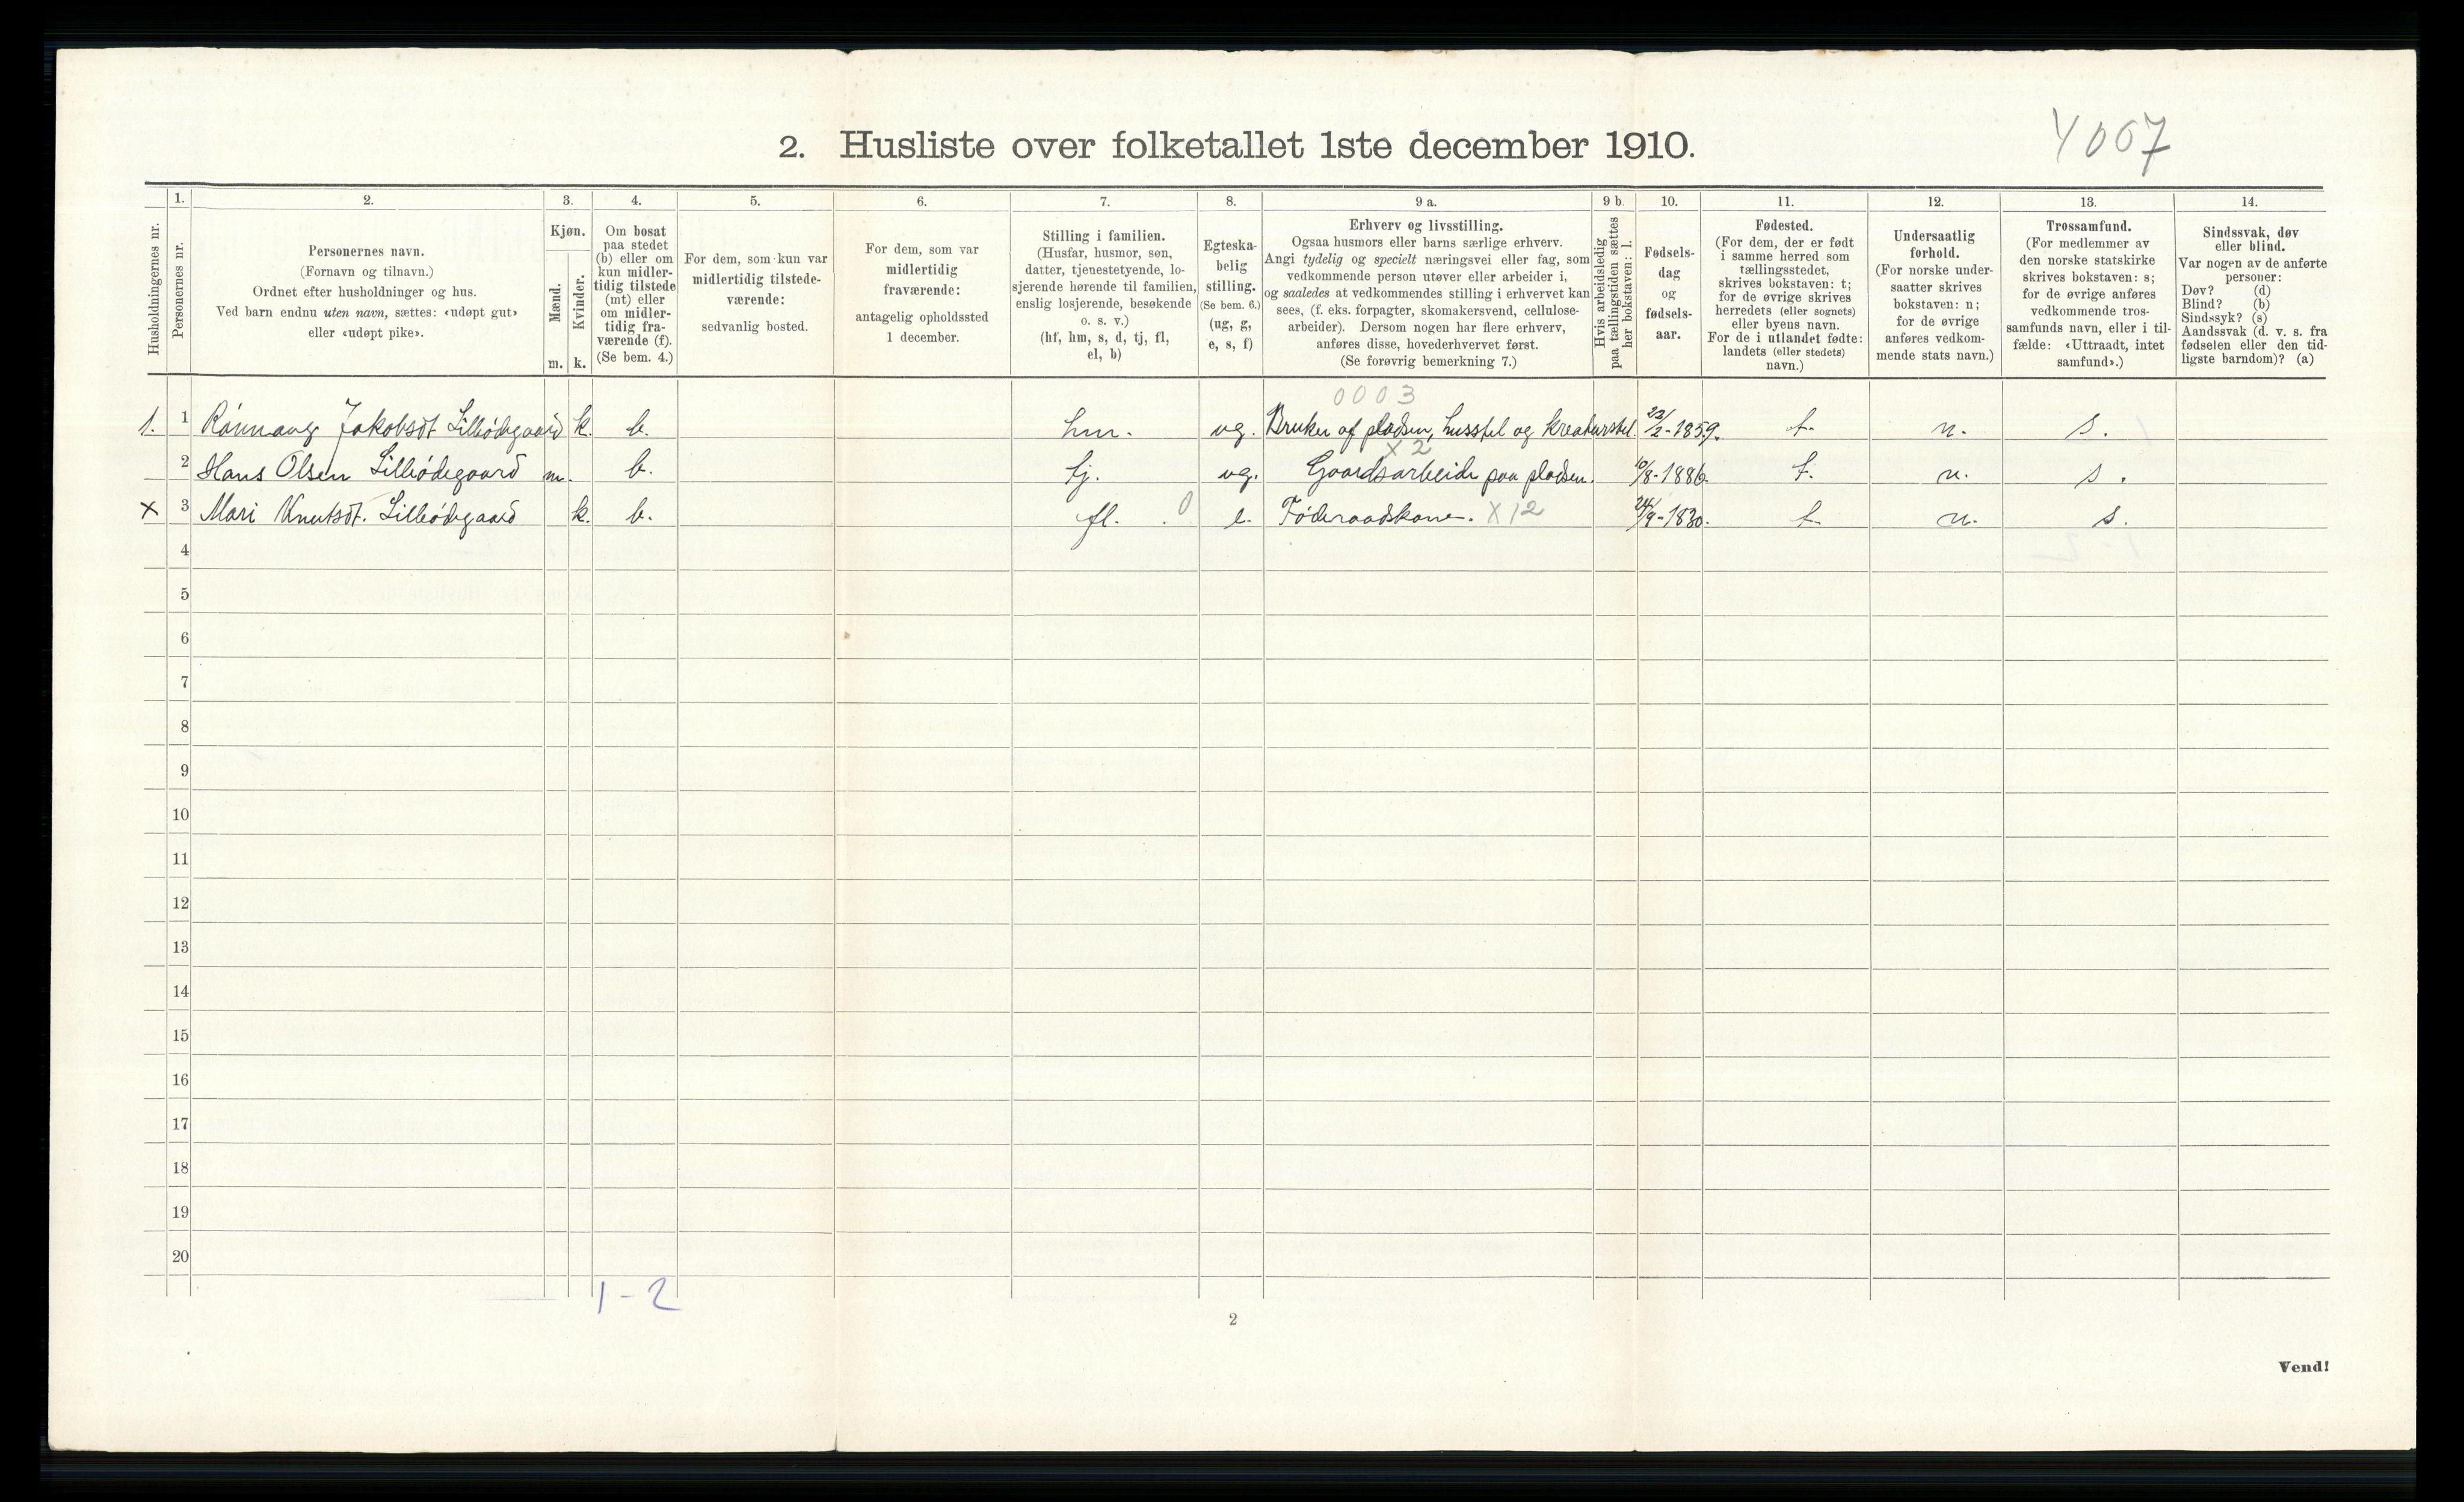 2. Husliste over folketallet 1ste december 1910.
4007
Husholdningernes nr.
1.
Personernes nr.
2.
Personernes navn.
(Fornavn og tilnavn.)
Ordnet efter husholdninger og hus.
Ved barn endnu uten navn, sættes: «udøpt gut»
eller «udøpt pike».
3.
Kjøn.
Mænd.
Kvinder.
m. k.
4.
Om bosat
paa stedet
(b) eller om
kun midler-
tidig tilstede
(mt) eller
om midler-
tidig fra-
værende (f).
(Se bem. 4.)
5.
For dem, som kun var
midlertidig tilstede-
værende:
sedvanlig bosted.
6.
For dem, som var
midlertidig
fraværende:
antagelig opholdssted
1 december.
7.
Stilling i familien.
(Husfar, husmor, søn,
datter, tjenestetyende, lo-
sjerende hørende til familien,
enslig losjerende, besøkende
o. s. v.)
(hf, hm, s, d, tj, fl,
el, b)
8.
Egteska-
belig
stilling.
(Se bem. 6.)
(ug, g,
e, s, f)
9 a.
Erhverv og livsstilling.
Ogsaa husmors eller barns særlige erhverv.
Angi tydelig og specielt næringsvei eller fag, som
vedkommende person utøver eller arbeider i,
og saaledes at vedkommendes stilling i erhvervet kan
sees, (f. eks. forpagter, skomakersvend, cellulose-
arbeider). Dersom nogen har flere erhverv,
anføres disse, hovederhvervet først.
(Se forøvrig bemerkning 7.)
9 b.
Hvis arbeidsledig
paa tællingstiden sættes
her bokstaven: l.
10.
Fødsels-
dag
og
fødsels-
aar.
11.
Fødested.
(For dem, der er født
i samme herred som
tællingsstedet,
skrives bokstaven: t;
for de øvrige skrives
herredets (eller sognets)
eller byens navn.
For de i utlandet fødte:
landets (eller stedets)
navn.)
12.
Undersaatlig
forhold.
(For norske under-
saatter skrives
bokstaven: n;
for de øvrige
anføres vedkom-
mende stats navn.)
13.
Trossamfund.
(For medlemmer av
den norske statskirke
skrives bokstaven: s;
for de øvrige anføres
vedkommende tros-
samfunds navn, eller i til-
fælde: «Uttraadt, intet
samfund».)
14.
Sindssvak, døv
eller blind.
Var nogen av de anførte
personer:
Døv? (d)
Blind? (b)
Sindssyk? (s)
Aandssvak (d. v. s. fra
fødselen eller den tid-
ligste barndom)? (a)
0003
1. 1 Rönnaug Jakobsdt Lilleödegaard k. b. hm. ug. Bruker af pladsen, husstel og kreaturstel. 23/2-1859. t. n. s.
X 2
2 Hans Olsen Lilleödegaard m. b. tj. ug. Gaardsarbeide paa pladsen. 10/8-1886. t. n. s.
x 3 Mari Knutsdt. Lilleödegaard k. b. fl. 0 e. Föderaadskone. X12 24/9-1830. t. n. s.
4
5
6
7
8
9
10
11
12
13
14
15
16
17
18
19
20
1-2
2
Vend!